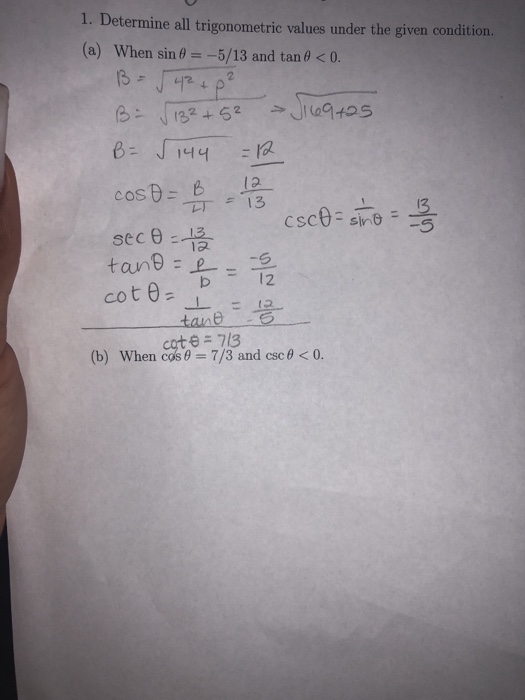 1. Determine all trigonometric values under the given condition.
(a) When sin θ = −5/13 and tan θ < 0.
B = √4² + p²
B = √13² + 5² → √169+25
B = √144 = 12
cosθ = B/H = 12/13
cscθ = 1/sinθ = 13/-5
sec θ = 13/12
tanθ = P/b = -5/12
cot θ = 1/tanθ = 12/5
cotθ = 7/3
(b) When cos θ = 7/3 and csc θ < 0.